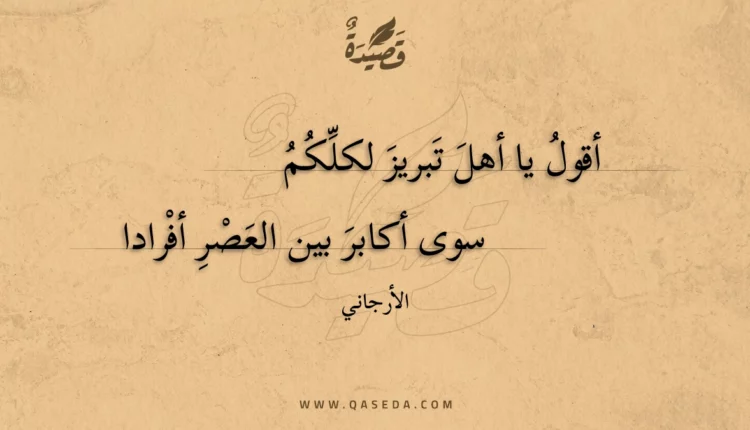 قَصِيدَةٌ
أقولُ يا أهلَ تَبريزَ لكلِّكُمُ
سوى أكابرَ بين العَصْرِ أفْرادا
الأرجاني
WWW.QASEDA.COM